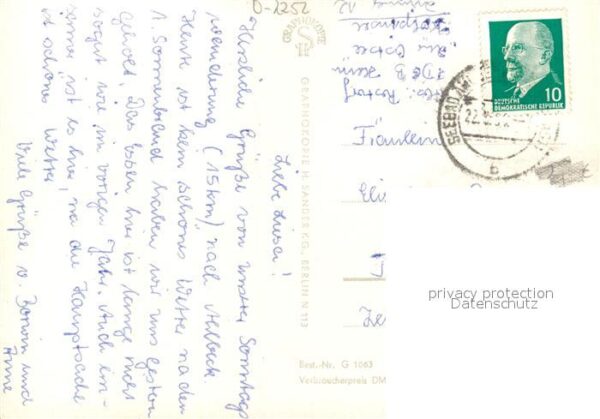 D-1252
Liebe Luise!
Herzliche Grüße von unserer Sonntags
wanderung (15km) nach Ahlbeck.
Heute ist kein schönes Wetter nach dem
1. Sonnenbrand haben wir uns gestern
geholt. Das Essen hier ist lange nicht
so gut wie im vorigen Jahr. Auch im-
ist es hier, na die Hauptsache
ist schönes Wetter
Viele Grüße v. und
Anne
GRAPHOKOPIE
GRAPHOKOPIE H. SANDER K.G., BERLIN N 113
Best.-Nr. G 1063
Verbraucherpreis DM
FDGB Heim
zur Ostsee
12
Fräulein
DEUTSCHE
DEMOKRATISCHE REPUBLIK
10
SEEBAD
b
privacy protection
Datenschutz